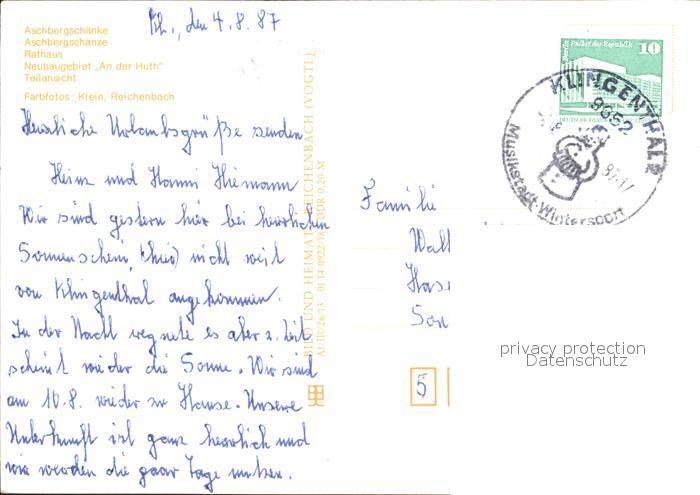 Aschbergschänke
Aschbergschanze
Rathaus
Neubaugebiet „An der Huth"
Teilansicht
Farbfotos: Klein, Reichenbach
Kli., den 4.8.87
Herzliche Urlaubsgrüße senden
Heinz und Hanni Hiemann
Wir sind gestern hier bei herrlichen
Sonnenschein (hier) nicht weit
von Klingenthal angekommen.
In der Nacht regnete es aber z. Zeit
scheint wieder die Sonne. Wir sind
am 10.8. wieder zu Hause. Unsere
Unterkunft ist ganz herrlich und
wir werden die paar Tage nutzen.
BILD UND HEIMAT REICHENBACH (VOGTL)
A1/III/26/13 01 14 0922/78 DDR 0,20 M
Berlin Palast der Republik 10
KLINGENTHAL 2
9652
87-17
Musikstadt-Wintersport
Familie
5
privacy protection
Datenschutz